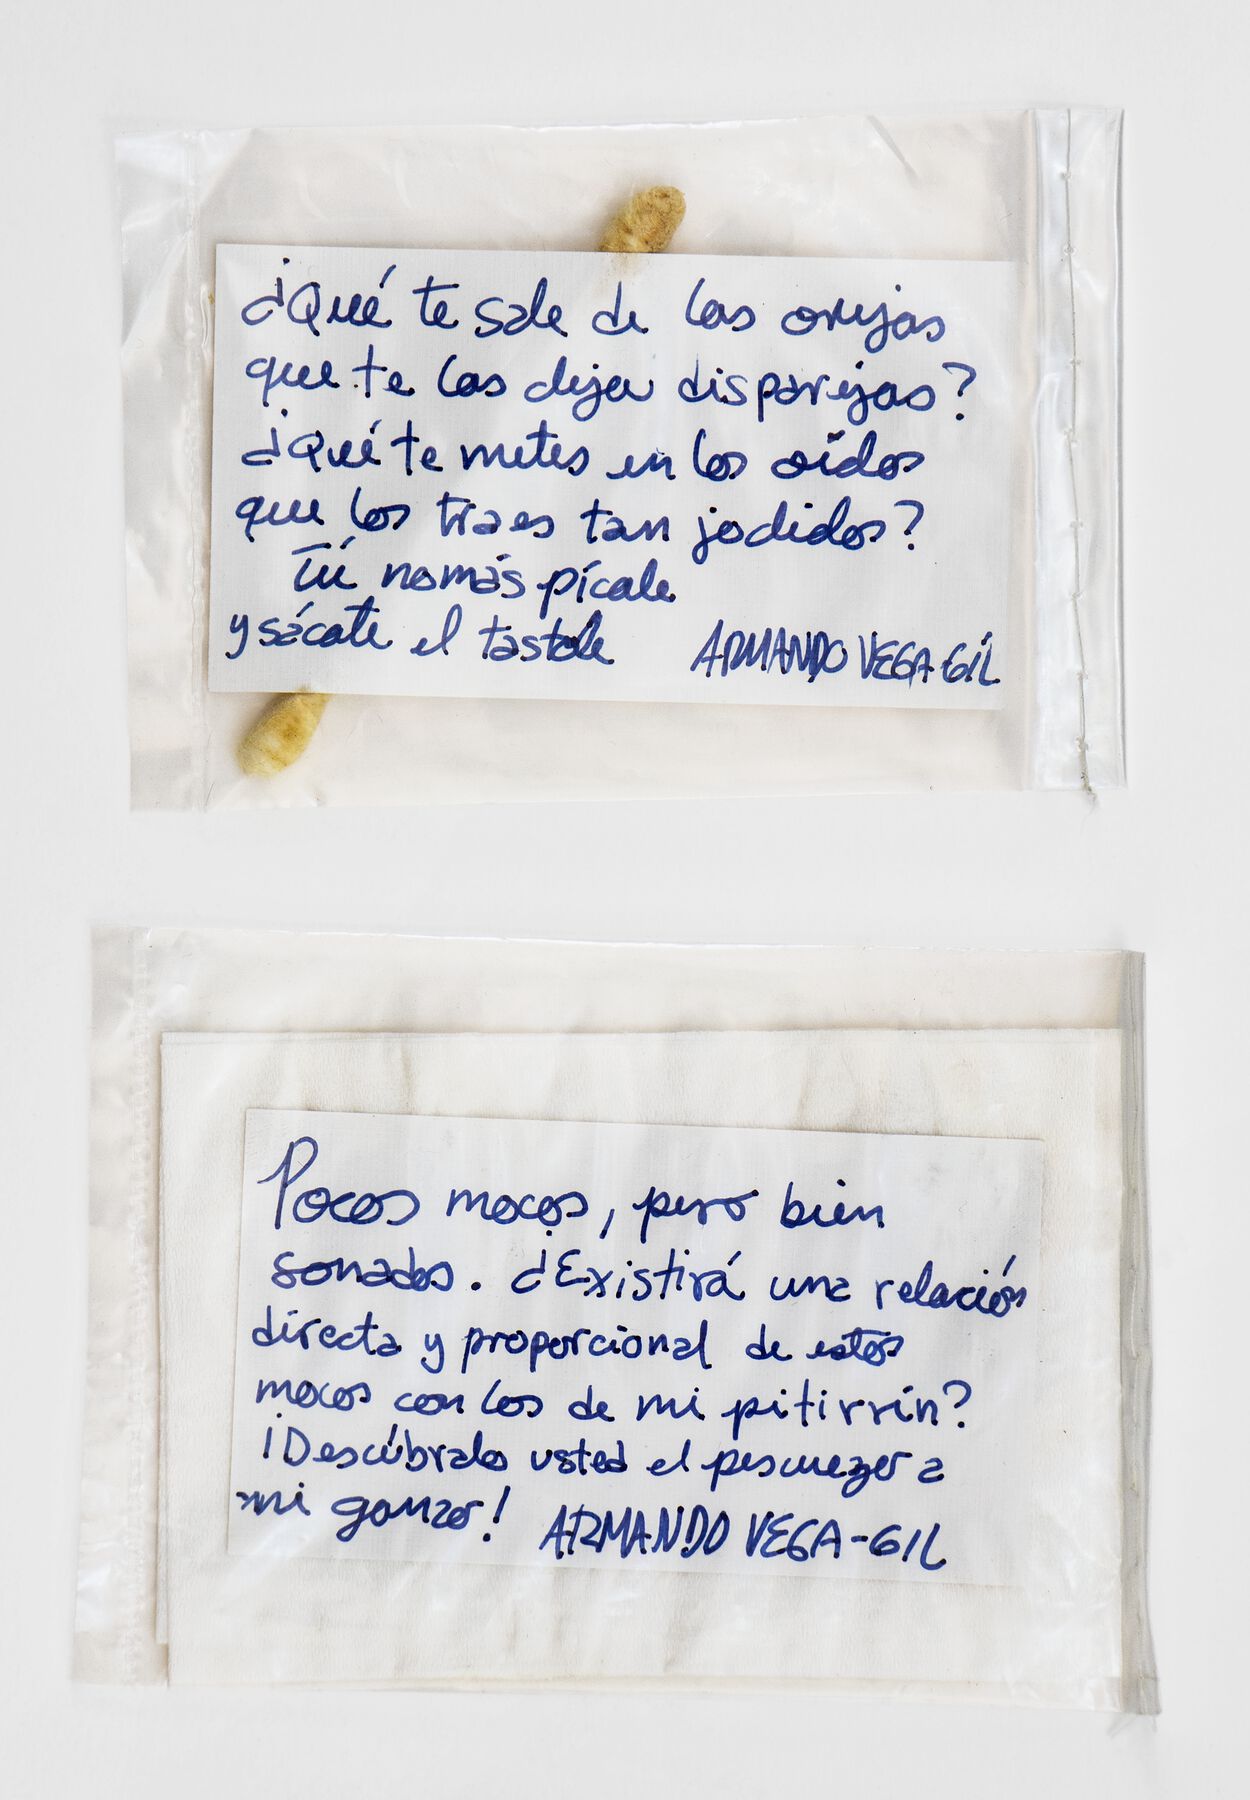 ¿Qué te sale de las orejas
que te las deja disparejas?
¿Qué te metes en los oídos
que los traes tan jodidos?
Tú nomás pícale
y sácate el tastole
ARMANDO VEGA-GIL
Pocos mocos, pero bien
sonados. ¿Existirá una relación
directa y proporcional de estos
mocos con los de mi pitirrín?
¡Descúbralo usted el pescuezer a
mi ganzo!
ARMANDO VEGA-GIL